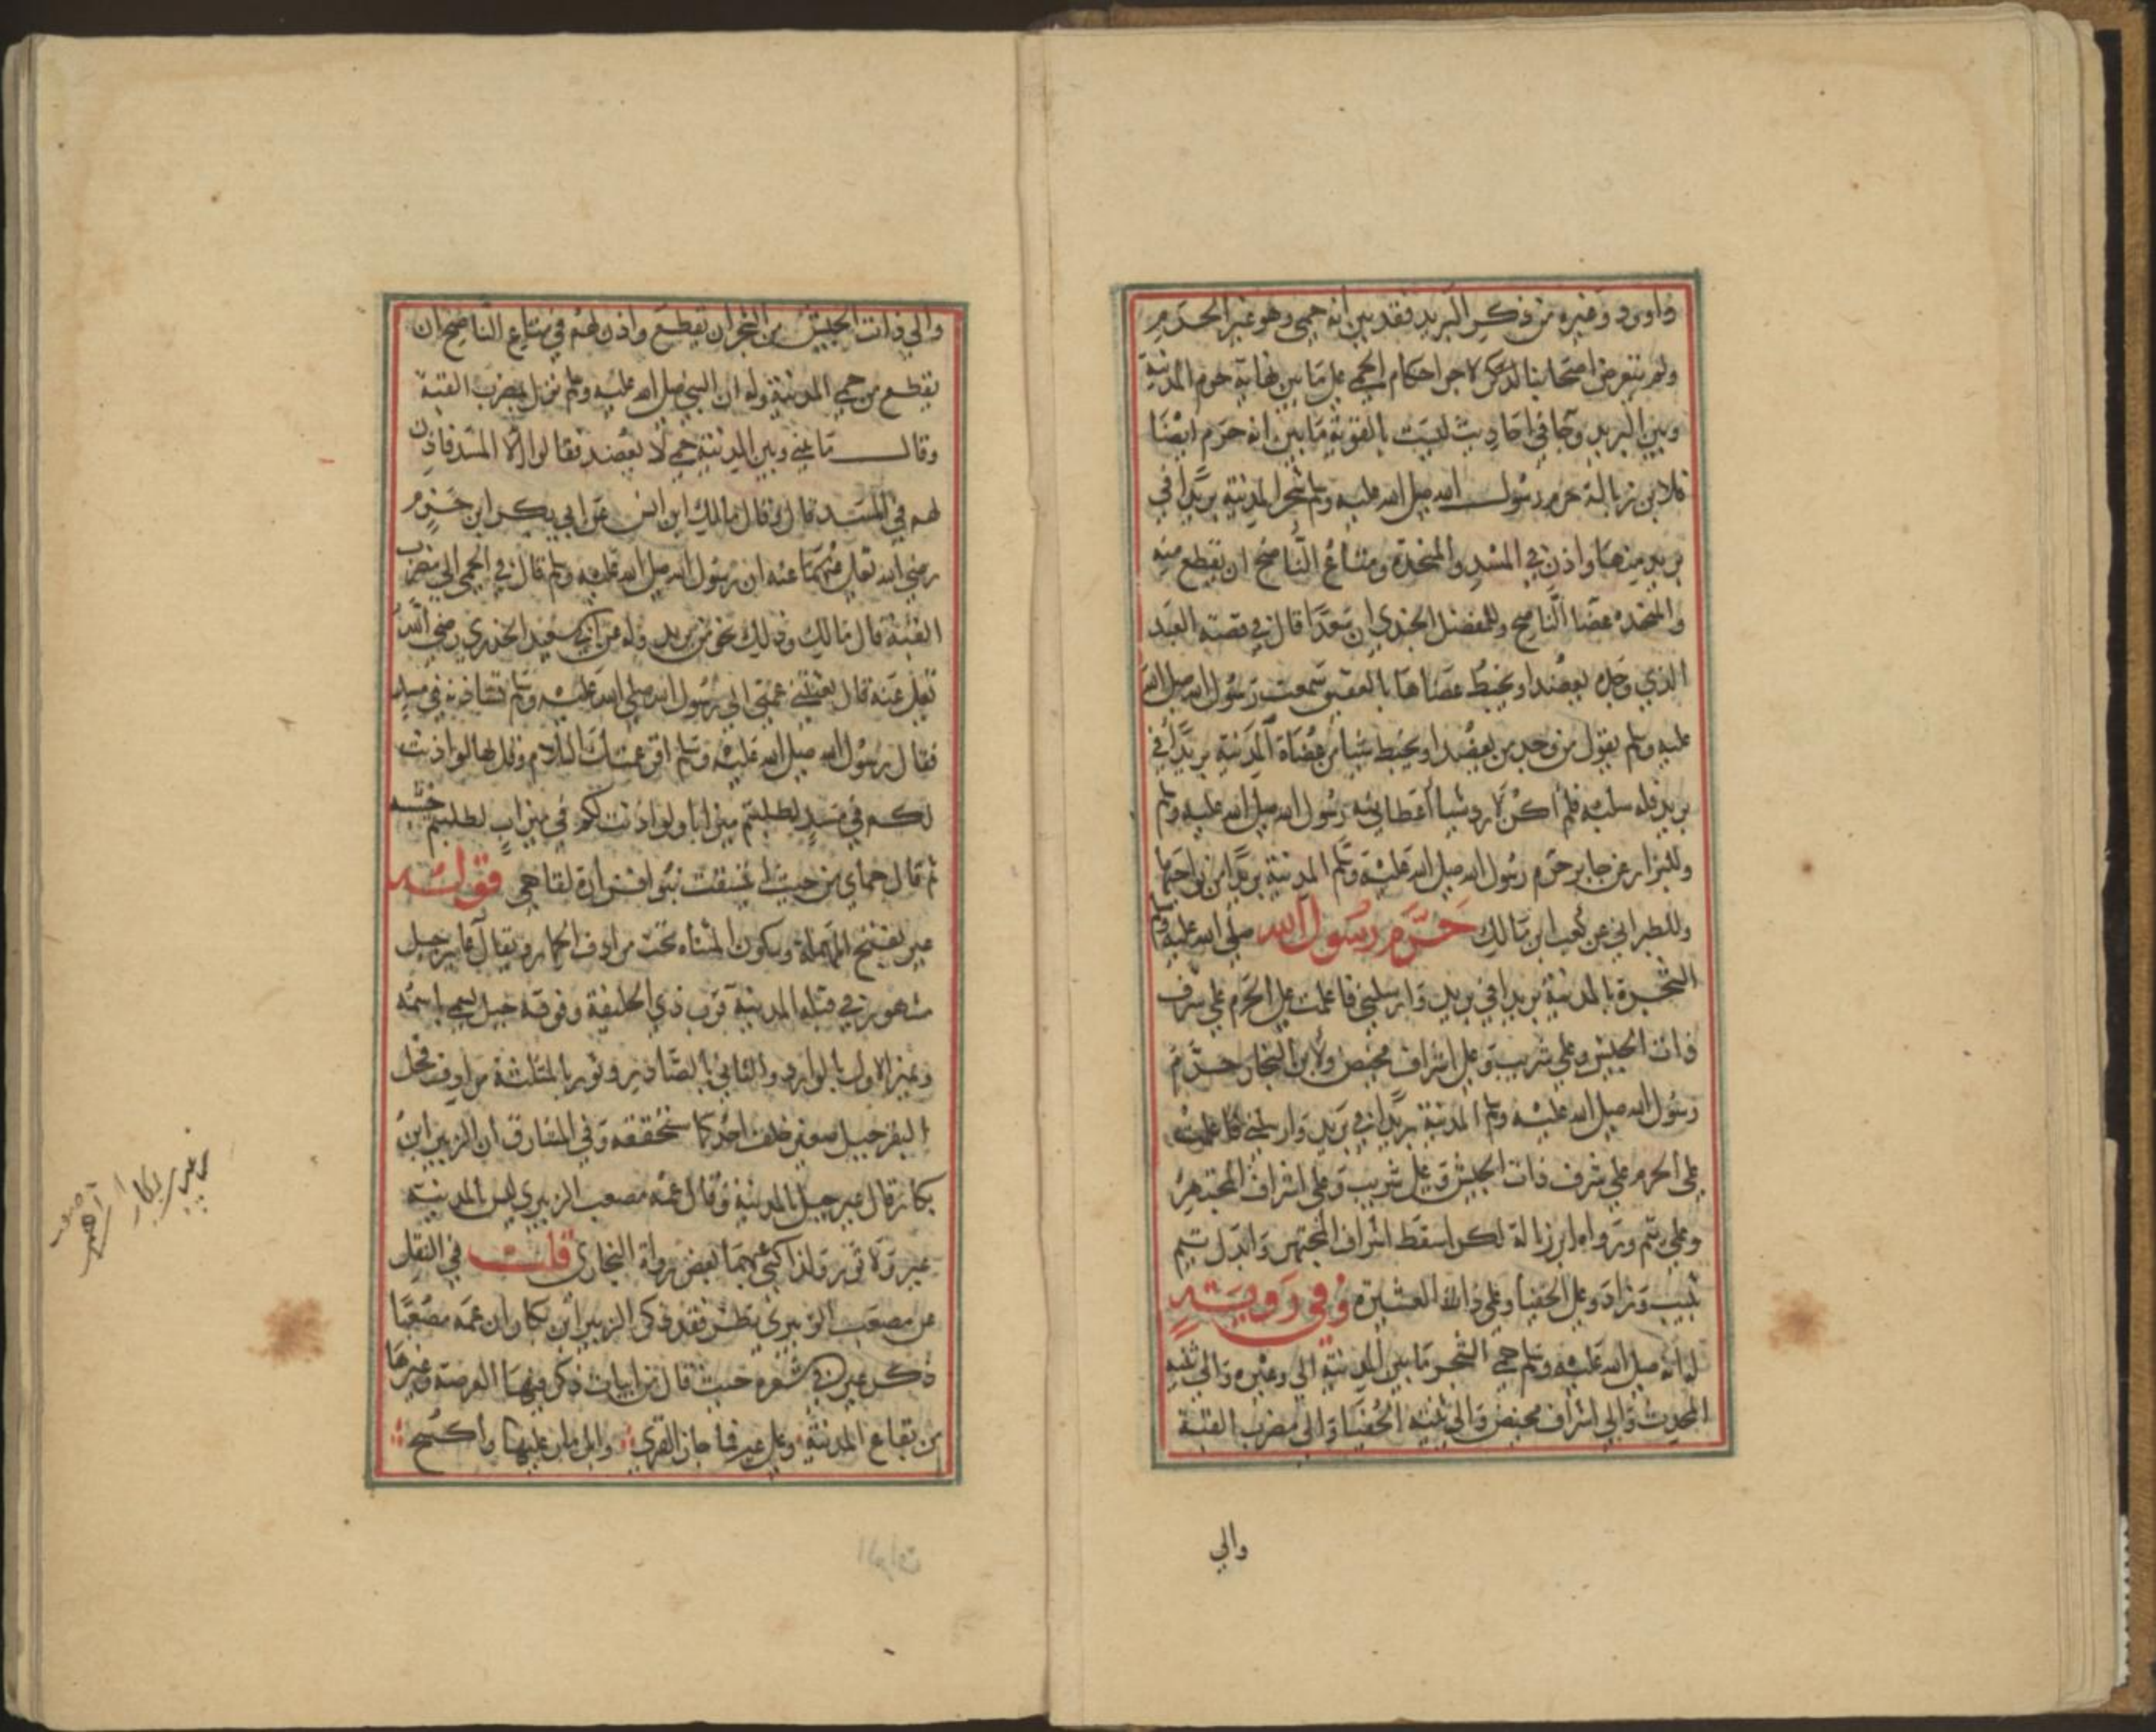 داود وغيره من ذكر البريد فقد بين انه حمى وهو غير الحرم
ولم يتعرض اصحابنا لذكر لاجر احكام الحمى على ما بين نهاية حرم المدينة
وبين البريد وجا في احاديث ليست بالقوية ما بين انه حرم ايضا
فلابن زبالة حرم رسول الله صلى الله عليه وسلم شجر المدينة بريدا في
بريد منها واذن في المسد والمنجدة ومتاع الناضح ان يقطع منه
والمنجده عصا الناضح وللمفضل الجندي ان سعدا قال في قصة العبد
الذي وجده يعضد او يخبط عضاها بالعقيق سمعت رسول الله صلى الله
عليه وسلم يقول من وجد من يعضد او يخبط شيا من عضاة المدينة بريدا في
بريد فله سلبه فلم اكن لارد شيا اعطانيه رسول الله صلى الله عليه وسلم
وللبزار عن جابر حرم رسول الله صلى الله عليه وسلم المدينة بريدا من نواحيها
وللطبراني عن كعب ابن مالك حرم رسول الله صلى الله عليه وسلم
الشجرة بالمدينة بريدا في بريد وارسلني فاعلمت على الحرم على شرف
ذات الجيش وعلى شريب وعلى اشراف مخيض ولابن النجار حرم
رسول الله صلى الله عليه وسلم المدينة بريدا في بريد وارسلني فاعلمت
على الحرم على شرف ذات الجيش وعلى شريب وعلى اشراف المجتهر
وعلى تيم ورواه ابن زبالة لكن اسقط اشراف المجتهر وابدل تيم
بثيب وزاد وعلى الحفيا وعلى ذات العشيرة وفي رواية
له انه صلى الله عليه وسلم حمى الشجر ما بين المدينة الى وعيره والى ثنيه
المحدث والى اشراف مخيض والى ثنيه الحفيا والى مضرب القبة
والي
والي ذات الجيش من الشجر ان يقطع واذن لهم في متاع الناضح ان
يقطع من حمى المدينة وله ان النبي صلى الله عليه وسلم نزل بمضرب القبة
وقال ما بيني وبين المدينة حمى لا يعضد فقالوا الا المسد فاذن
لهم في المسد قال وقال مالك ابن انس عن ابي بكر ابن حزم
رضي الله تعالى عنهما عنه ان رسول الله صلى الله عليه وسلم قال في الحمى الى مضرب
القبة قال مالك وذلك نحو من بريد وله عن ابي سعيد الخدري رضي الله
تعالى عنه قال بعثتني عمتي الى رسول الله صلى الله عليه وسلم تستاذنه في مسد
فقال رسول الله صلى الله عليه وسلم اقر عمتك السلام وقل لها لو اذنت
لكم في مسد لطلبتم ميزابا ولو اذنت لكم في ميزاب لطلبتم خشبه
ثم قال حماي من حيث استبقت بنو افزارة لقاحي قوله
عير بفتح المهملة وسكون المثناه تحت مرادف الحمار ويقال عاير جبل
مشهور في قبلة المدينة قرب ذي الحليفة وفوقه جبل يسمى باسمه
ويميز الاول بالوارد والثاني بالصادر وثور بالمثلثة مرادف فحل
البقر جبل صغير خلف احد كما سنحققه وفي المشارق ان الزبير ابن
بكار قال عير جبل بالمدينة وقال عمه مصعب الزبيري ليس بالمدينة
عير ولا ثور ولذا كنى عنهما بعض رواة البخاري قلت في النقل
عن مصعب الزبيري نظر فقد ذكر الزبير ابن بكار ان عمه مصعبا
ذكر عير في شعره حيث قال من ابيات ذكر فيها العرصة وغيرها
من بقاع المدينة وعلى عير فما جاز القرى وابل مار عليها واكتسح